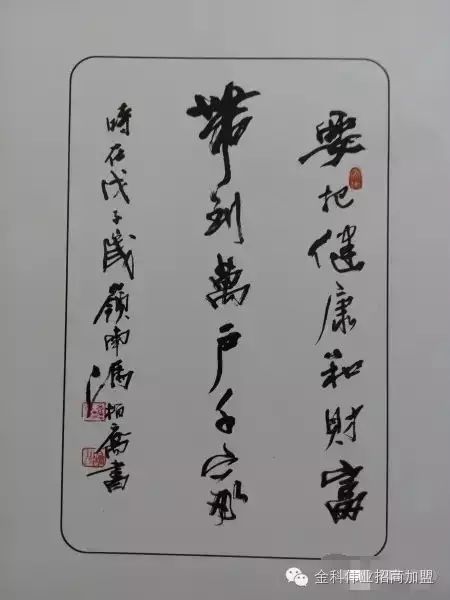 要把健康和財富
帶到萬户千家
時在戊子歲嶺南馮栢喬書
金科伟业招商加盟